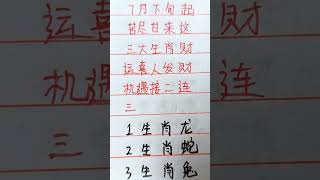 7月下旬起
苦尽甘来这
三大生肖财
运喜人发财
机遇接二连
三
1生肖龙
2生肖蛇
3生肖兔